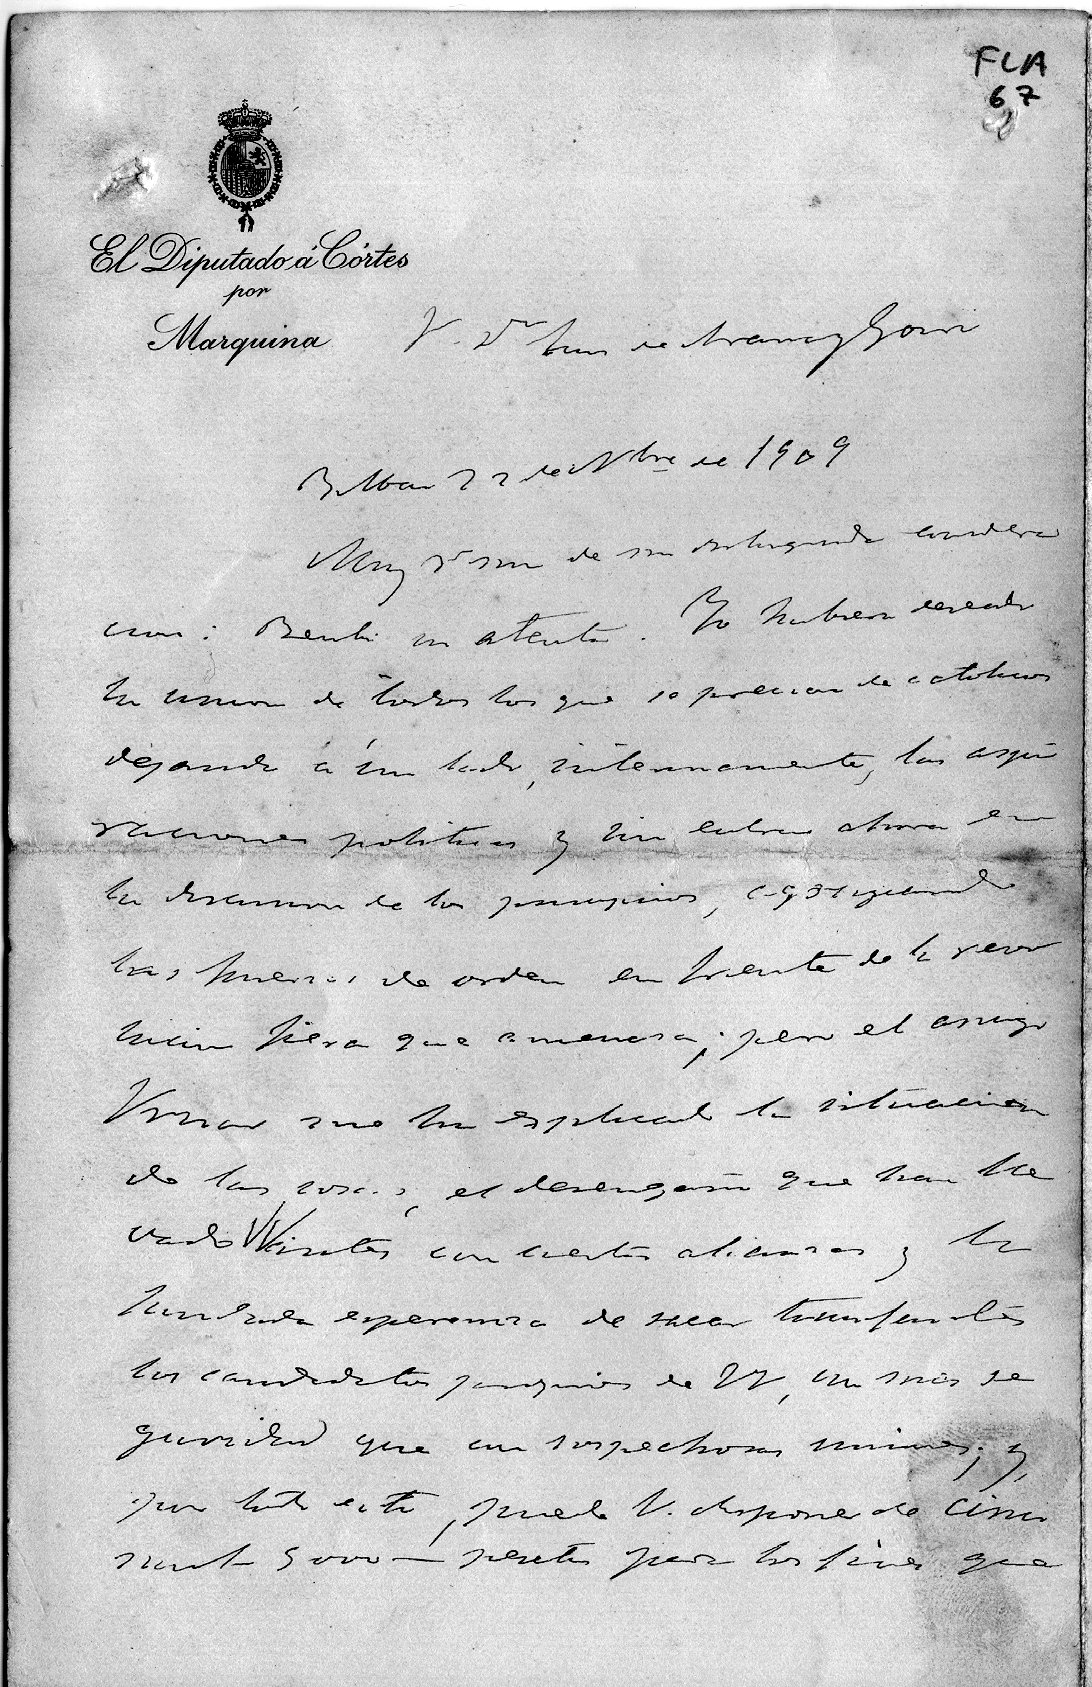 FLA
67
El Diputado á Córtes
por
Marquina
Sr. Dn Luis de Arana y Goiri
Bilbao 22 de Nbre de 1909
Muy Sr mio de mi distinguida considera
cion: Recibí su atenta. Yo hubiera deseado
la union de todos los que se precian de catolicos
dejando á un lado, interinamente, las aspi
raciones politicas y sin entrar ahora en
la discusion de los principios,
las fuerzas de orden en frente de la revo
lucion fiera que amenaza; pero el amigo
me ha esplicado la situacion
de las cosas, el desengaño que han lle
vado Vds con ciertas alianzas y la
fundada esperanza de sacar triunfantes
los candidatos propios de VV, con mas se
guridad que con sospechosas uniones; y,
por todo esto, puede V. disponer de cinco
mil 5000 — pesetas para los fines que